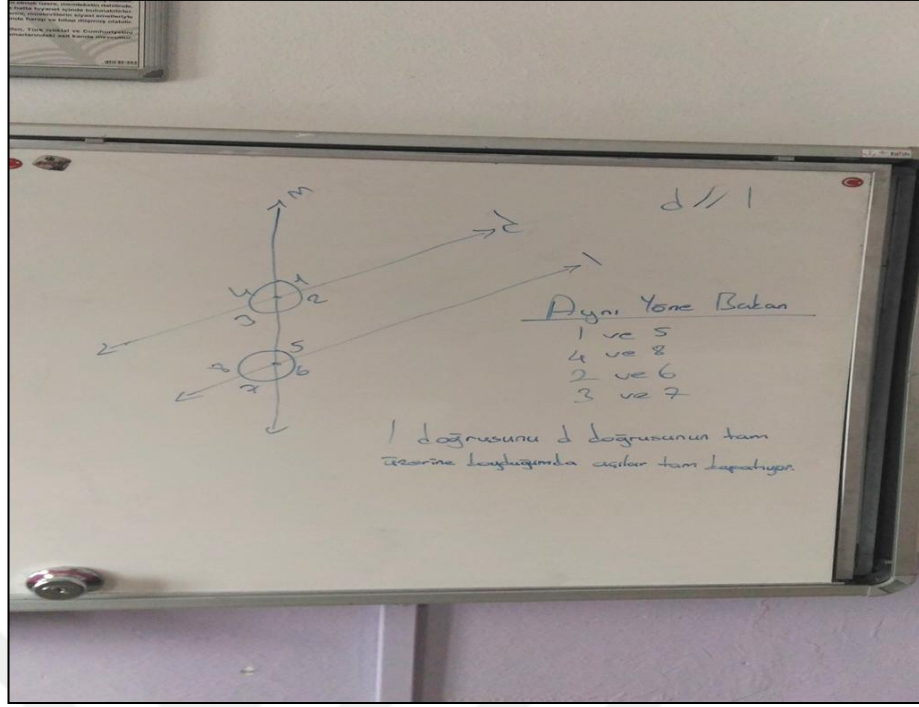 d // l
m
d
l
4 1
3 2
8 5
7 6
Aynı Yöne Bakan
1 ve 5
4 ve 8
2 ve 6
3 ve 7
l doğrusunu d doğrusunun tam
üzerine koyduğumda açılar tam kapatıyor.